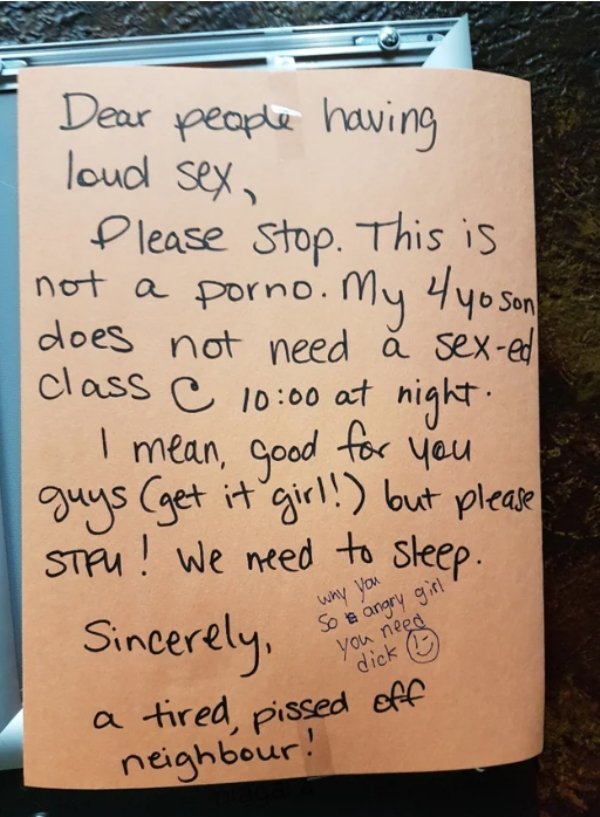 Dear people having
loud sex,
Please stop. This is
not a porno. My 4yo son
does not need a sex-ed
class @ 10:00 at night.
I mean, good for you
guys (get it girl!) but please
STFU! We need to sleep.
Sincerely,
a tired, pissed off
neighbour!
why you
so angry girl
you need
dick